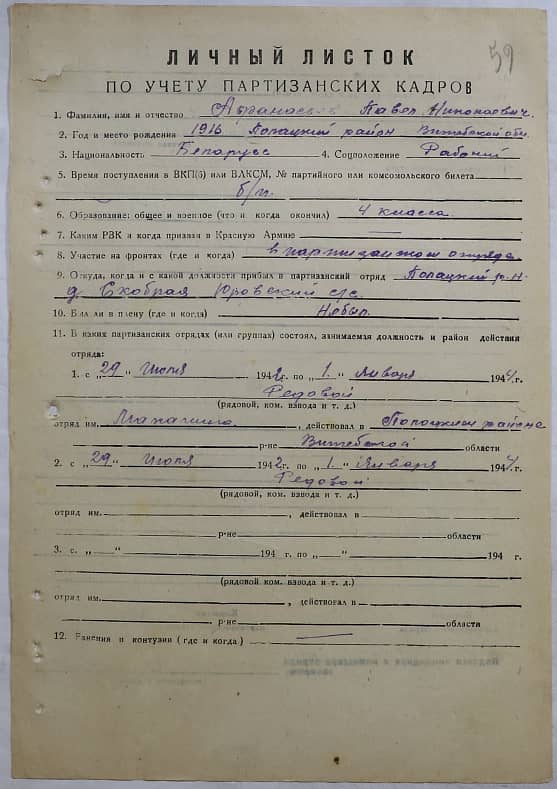 59
ЛИЧНЫЙ ЛИСТОК
ПО УЧЕТУ ПАРТИЗАНСКИХ КАДРОВ
1. Фамилия, имя и отчество Павел Николаевич.
2. Год и место рождения 1916 Полацкий район Витебской обл.
3. Национальность Беларусс 4. Соцположение Рабочий
5. Время поступления в ВКП(б) или ВЛКСМ, № партийного или комсомольского билета
б/п.
6. Образование: общее и военное (что и когда окончил) 4 класса.
7. Каким РВК и когда призван в Красную Армию
8. Участие на фронтах (где и когда) в партизанском отряде
9. Откуда, когда и с какой должности прибыл в партизанский отряд Полацкий р-н
д. Юровский с/с.
10. Был ли в плену (где и когда) Небыл.
11. В каких партизанских отрядах (или группах) состоял, занимаемая должность и район действия
отряда:
1. с „29" Июля 1942 г. по „1." Января 1944 г.
Редовой
(рядовой, ком. взвода и т. д.)
отряд им. , действовал в Полоцким районе
р-не Витебской области
2. с „29" Июля 1942 г. по „1." Января 1944 г.
Редовой
(рядовой, ком. взвода и т. д.)
отряд им. , действовал в
р-не области
3. с. „ " 194 г. по „ " 194 г.
(рядовой, ком. взвода и т. д.)
отряд им. , действовал в
р-не области
12. Ранения и контузии (где и когда)